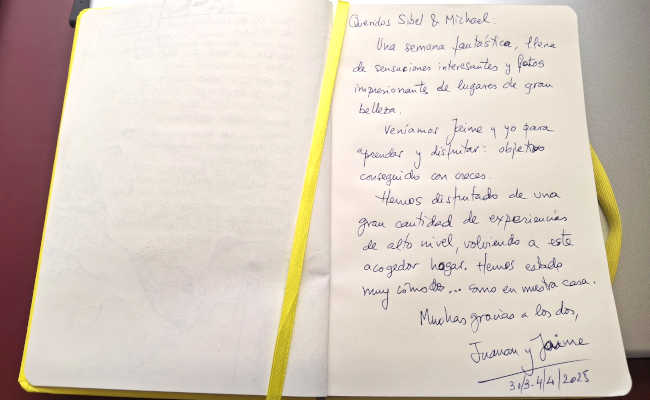 Queridos Sibel & Michael.
Una semana fantástica, llena
de sensaciones interesantes y fotos
impresionante de lugares de gran
belleza.
Veníamos Jaime y yo para
aprender y disfrutar: objetivo
conseguido con creces.
Hemos disfrutado de una
gran cantidad de experiencias
de alto nivel, volviendo a este
acogedor hogar. Hemos estado
muy cómodos... como en nuestra casa.
Muchas gracias a los dos,
Juanan y Jaime
31/3-4/4/2025